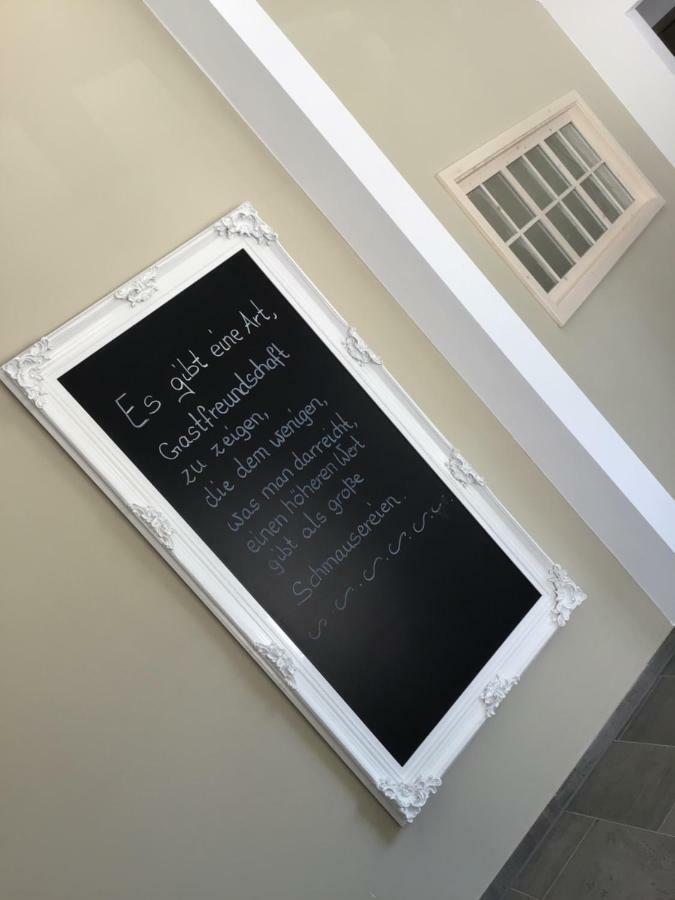 Es gibt eine Art,
Gastfreundschaft
zu zeigen,
die dem wenigen,
was man darreicht,
einen höheren Wert
gibt als große
Schmausereien.